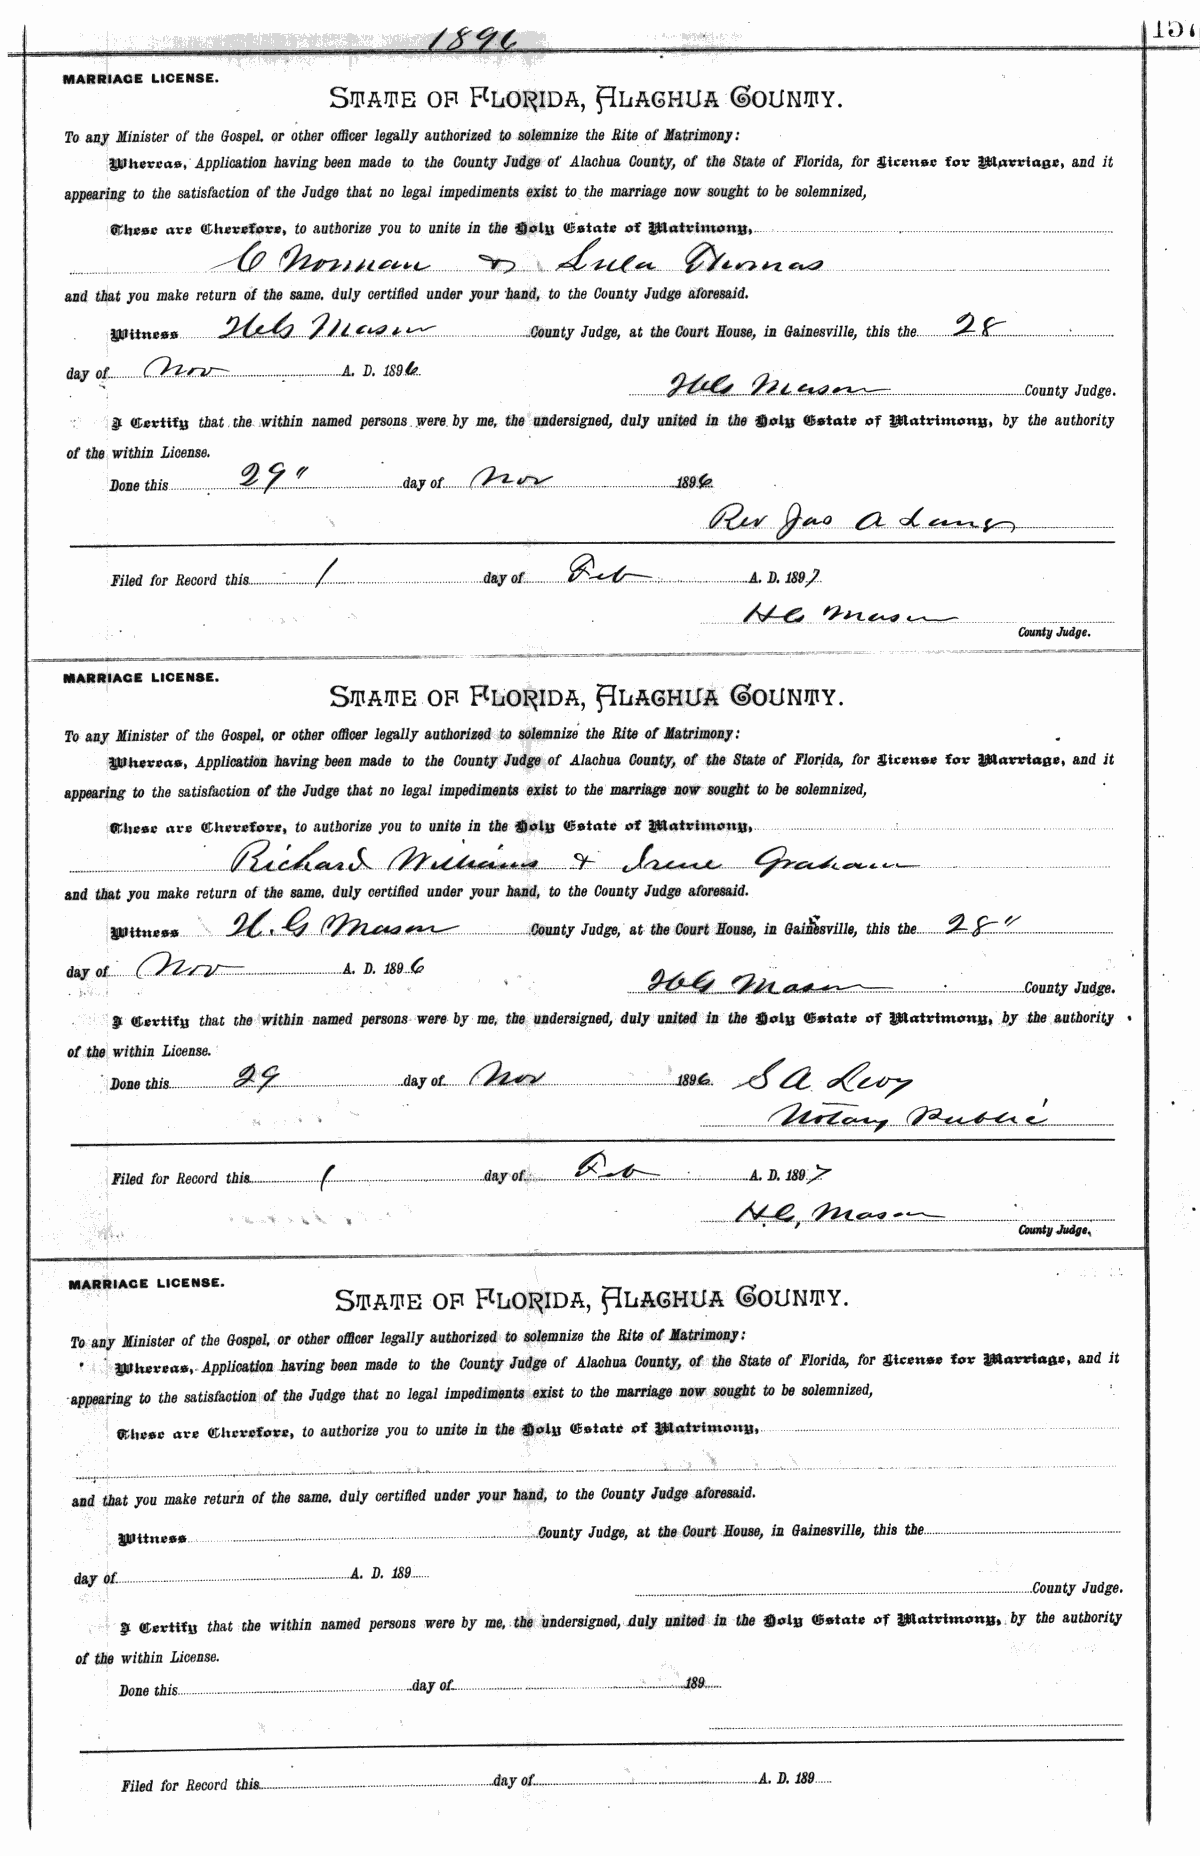 1896
157
MARRIAGE LICENSE.
STATE OF FLORIDA, ALACHUA COUNTY.
To any Minister of the Gospel, or other officer legally authorized to solemnize the Rite of Matrimony:
Whereas, Application having been made to the County Judge of Alachua County, of the State of Florida, for License for Marriage, and it
appearing to the satisfaction of the Judge that no legal impediments exist to the marriage now sought to be solemnized,
These are Therefore, to authorize you to unite in the Holy Estate of Matrimony,
C Norman & Lula Thomas
and that you make return of the same, duly certified under your hand, to the County Judge aforesaid.
Witness H G Mason County Judge, at the Court House, in Gainesville, this the 28
day of Nov A. D. 1896
H G Mason County Judge.
I Certify that the within named persons were by me, the undersigned, duly united in the Holy Estate of Matrimony, by the authority
of the within License.
Done this 29" day of Nov 1896
Rev Jas A Lang
Filed for Record this 1 day of Feb A. D. 1897
H G Mason
County Judge.
MARRIAGE LICENSE.
STATE OF FLORIDA, ALACHUA COUNTY.
To any Minister of the Gospel, or other officer legally authorized to solemnize the Rite of Matrimony:
Whereas, Application having been made to the County Judge of Alachua County, of the State of Florida, for License for Marriage, and it
appearing to the satisfaction of the Judge that no legal impediments exist to the marriage now sought to be solemnized,
These are Therefore, to authorize you to unite in the Holy Estate of Matrimony,
Richard Williams & Irene Graham
and that you make return of the same, duly certified under your hand, to the County Judge aforesaid.
Witness H. G Mason County Judge, at the Court House, in Gainesville, this the 28"
day of Nov A. D. 1896
H G Mason County Judge.
I Certify that the within named persons were by me, the undersigned, duly united in the Holy Estate of Matrimony, by the authority
of the within License.
Done this 29 day of Nov 1896 S A Levy
Notary Public
Filed for Record this 1 day of Feb A. D. 1897
H. G, Mason
County Judge.
MARRIAGE LICENSE.
STATE OF FLORIDA, ALACHUA COUNTY.
To any Minister of the Gospel, or other officer legally authorized to solemnize the Rite of Matrimony:
Whereas, Application having been made to the County Judge of Alachua County, of the State of Florida, for License for Marriage, and it
appearing to the satisfaction of the Judge that no legal impediments exist to the marriage now sought to be solemnized,
These are Therefore, to authorize you to unite in the Holy Estate of Matrimony,
and that you make return of the same, duly certified under your hand, to the County Judge aforesaid.
Witness County Judge, at the Court House, in Gainesville, this the
day of A. D. 189
County Judge.
I Certify that the within named persons were by me, the undersigned, duly united in the Holy Estate of Matrimony, by the authority
of the within License.
Done this day of 189
Filed for Record this day of A. D. 189